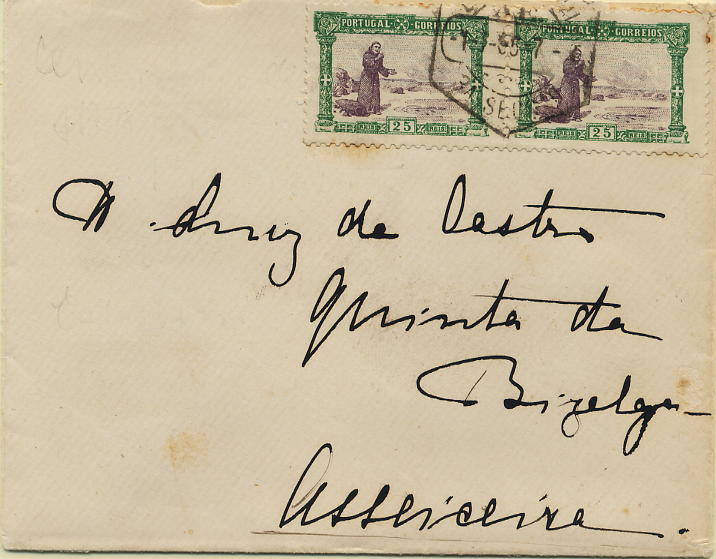 PORTUGAL CORREIOS PORTUGAL CORREIOS
25 REIS 25 REIS
D. Luiz de Castro
Quinta da
Bizelga
Asseiceira.